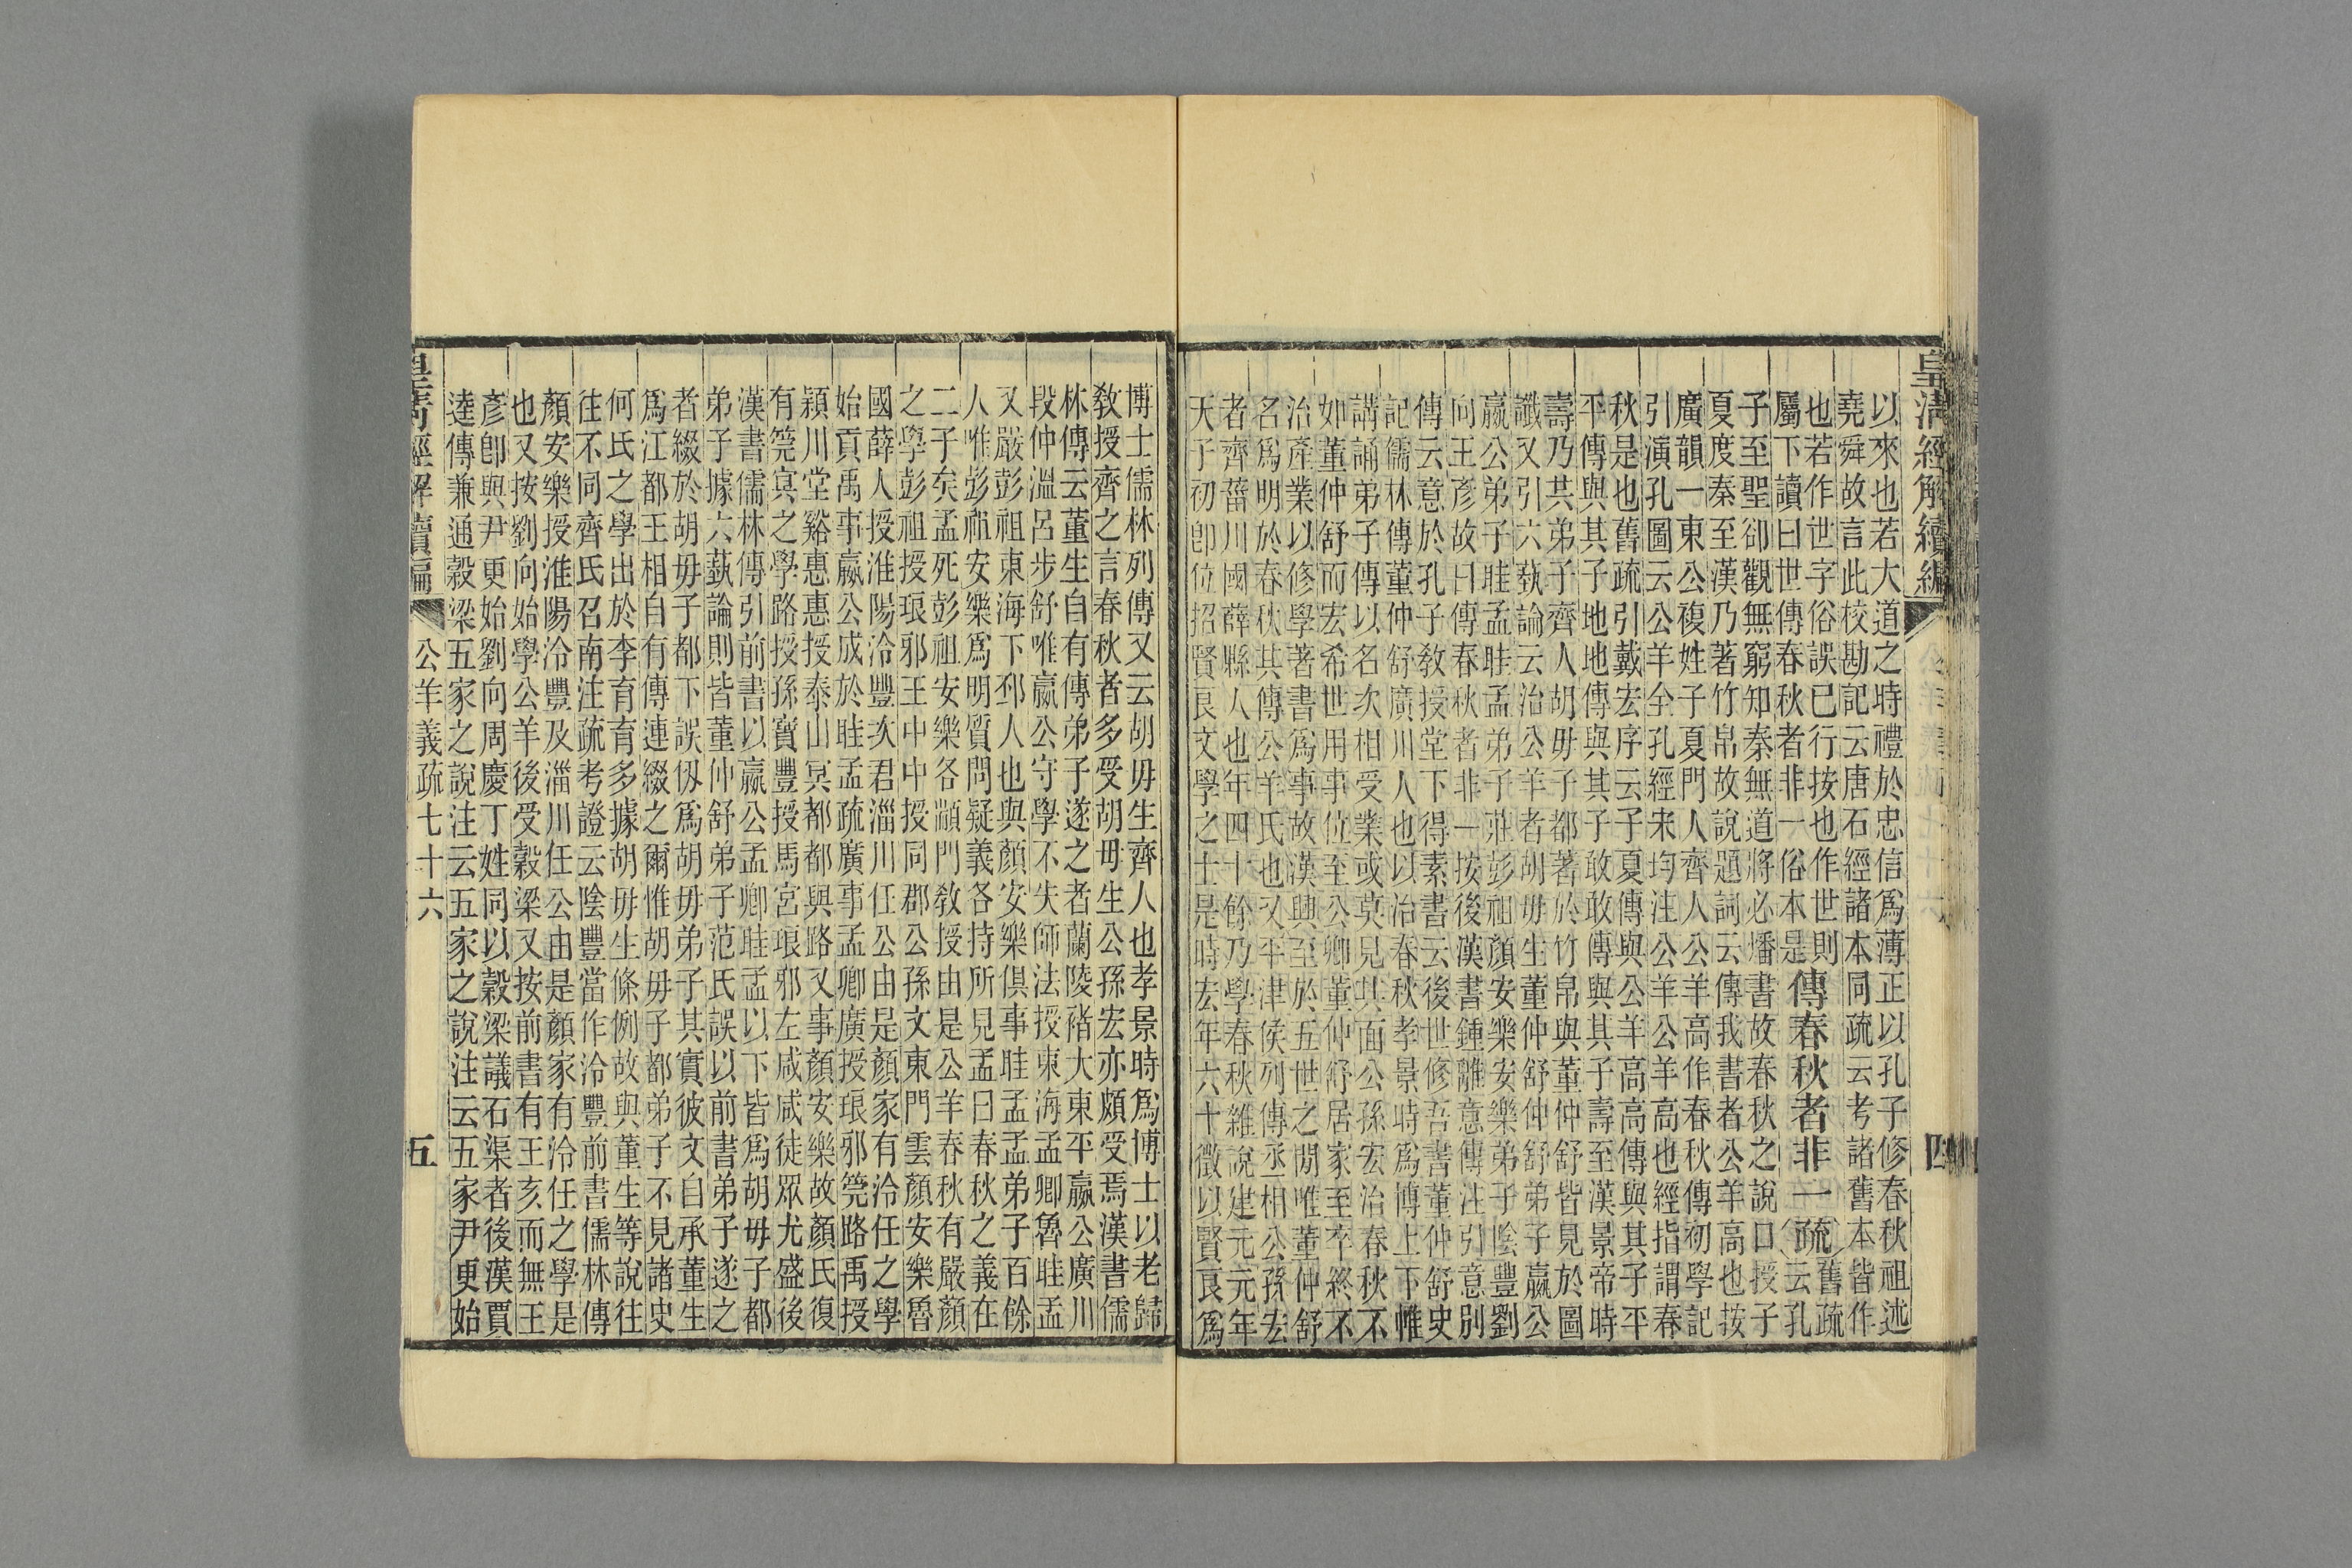 皇清經解續編
四
以來也若大道之時禮於忠信爲薄正以孔子修春秋祖述
堯舜故言此校勘記云唐石經諸本同疏云考諸舊本皆作
也若作世字俗誤已行按也作世則
屬下讀曰世傳春秋者非一俗本是
傳春秋者非一
疏
云舊疏
孔
子至聖卻觀無窮知秦無道將必燔書故春秋之說口授子
夏度秦至漢乃著竹帛故說題詞云傳我書者公羊高也按
廣韻一東公複姓子夏門人齊人公羊高作春秋傳初學記
引演孔圖云公羊全孔經宋均注公羊公羊高也經指謂春
秋是也舊疏引戴宏序云子夏傳與公羊高高傳與其子平
平傳與其子地地傳與其子敢敢傳與其子壽至漢景帝時
壽乃其弟子齊人胡毋子都著於竹帛與董仲舒皆見於圖
讖又引六蓺論云治公羊者胡毋生董仲舒仲舒弟子嬴公
嬴公弟子眭孟眭孟弟子莊彭祖顏安樂安樂弟子陰豐劉
向王彥故曰傳春秋者非一按後漢書鍾離意傳注引意別
傳云意於孔子敎授堂下得素書云後世修吾書董仲舒史
記儒林傳董仲舒廣川人也以治春秋孝景時爲博士下帷
講誦弟子傳以名次相受業或莫見其面公孫宏治春秋不
如董仲舒而宏希世用事位至公卿董仲舒居家至卒終不
治產業以修學著書爲事故漢興至於五世之閒唯董仲舒
名爲明於春秋其傳公羊氏也又平津侯列傳丞相公孫宏
者齊菑川國薛縣人也年四十餘乃學春秋雜說建元元年
天子初卽位招賢良文學之士是時宏年六十徵以賢良爲
博士儒林列傳又云胡毋生齊人也孝景時爲博士以老歸
敎授齊之言春秋者多受胡毋生公孫宏亦頗受焉漢書儒
林傳云董生自有傳弟子遂之者蘭陵褚大東平嬴公廣川
段仲溫呂步舒唯嬴公守學不失師法授東海孟卿魯眭孟
又嚴彭祖東海下邳人也與顏安樂俱事眭孟孟弟子百餘
人唯彭祖安樂爲明質問疑義各持所見孟曰春秋之義在
二子矣孟死彭祖安樂各顓門敎授由是公羊春秋有嚴顏
之學彭祖授琅邪王中中授同郡公孫文東門雲顏安樂魯
國薛人授淮陽泠豐次君淄川任公由是顏家有泠任之學
始貢禹事嬴公成於眭孟疏廣事孟卿廣授琅邪筦路禹授
潁川堂谿惠惠授泰山冥都都與路又事顏安樂故顏氏復
有筦冥之學路授孫寶豐授馬宮琅邪左咸咸徒眾尤盛後
漢書儒林傳引前書以嬴公孟卿眭孟以下皆爲胡毋子都
弟子據六蓺論則皆董仲舒弟子范氏誤以前書弟子遂之
者綴於胡毋子都下誤仭爲胡毋弟子其實彼文自承董生
爲江都王相自有傳連綴之爾惟胡毋子都弟子不見諸史
何氏之學出於李育育多據胡毋生條例故與董生等說往
往不同齊氏召南注疏考證云陰豐當作泠豐前書儒林傳
顏安樂授淮陽泠豐及淄川任公由是顏家有泠任之學是
也又按劉向始學公羊後受穀梁又按前書有王亥而無王
彥卽與尹更始劉向周慶丁姓同以穀梁議石渠者後漢賈
逵傳兼通穀梁五家之說注云五家之說注云五家尹更始
皇清經解續編
公羊義疏七十六
五